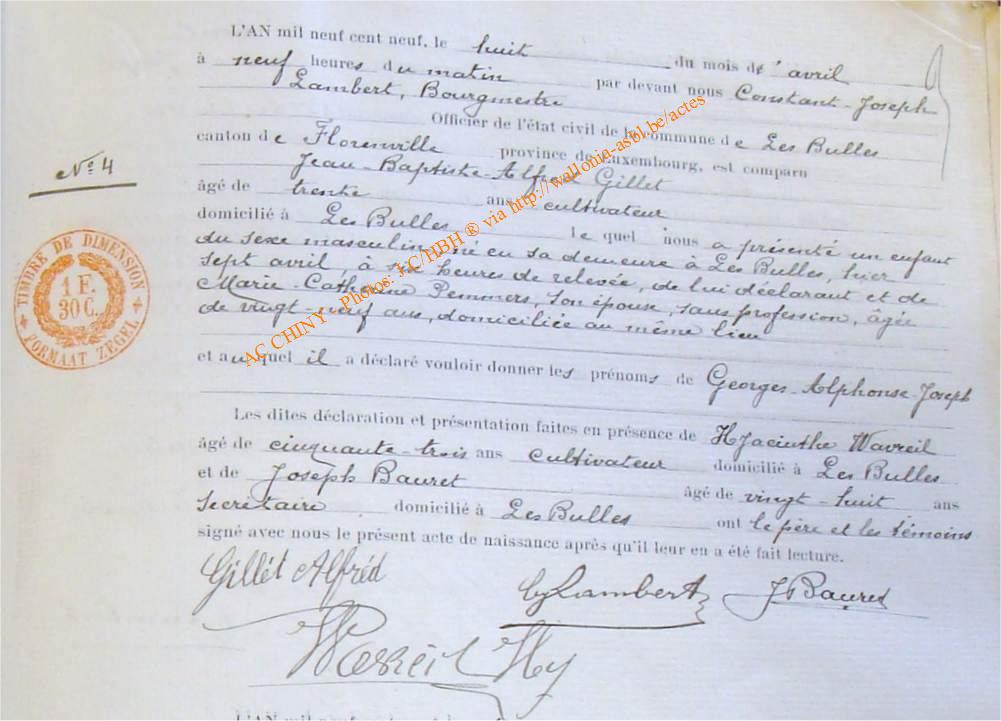 L'AN mil neuf cent neuf, le huit du mois de avril
à neuf heures du matin par devant nous Constant-Joseph
Lambert, Bourgmestre
Officier de l'état civil de la commune de Les Bulles
canton de Florenville province de Luxembourg, est comparu
Jean-Baptiste-Alfred Gillet
N° 4
âgé de trente ans cultivateur
domicilié à Les Bulles lequel nous a présenté un enfant
du sexe masculin né en sa demeure à Les Bulles, hier
sept avril, à heures de relevée, de lui déclarant et de
Marie-Catherine Pemmers, son épouse, sans profession, âgée
de vingt-neuf ans, domiciliée au même lieu
et auquel il a déclaré vouloir donner les prénoms de Georges-Alphonse-Joseph
Les dites déclaration et présentation faites en présence de Hyacinthe Wavreil
âgé de cinquante-trois ans cultivateur domicilié à Les Bulles
et de Joseph Bauret âgé de vingt-huit ans
secrétaire domicilié à Les Bulles ont le père et les témoins
signé avec nous le présent acte de naissance après qu'il leur en a été fait lecture.
Gillet Alfred
Lambert
J Bauret
Hy
L'AN mil neuf cent
TIMBRE DE DIMENSION
1 F.
30 C.
FORMAAT ZEGEL
AC CHINY - Photos: J.C/HBH ® via http://wallonia-asbl.be/actes